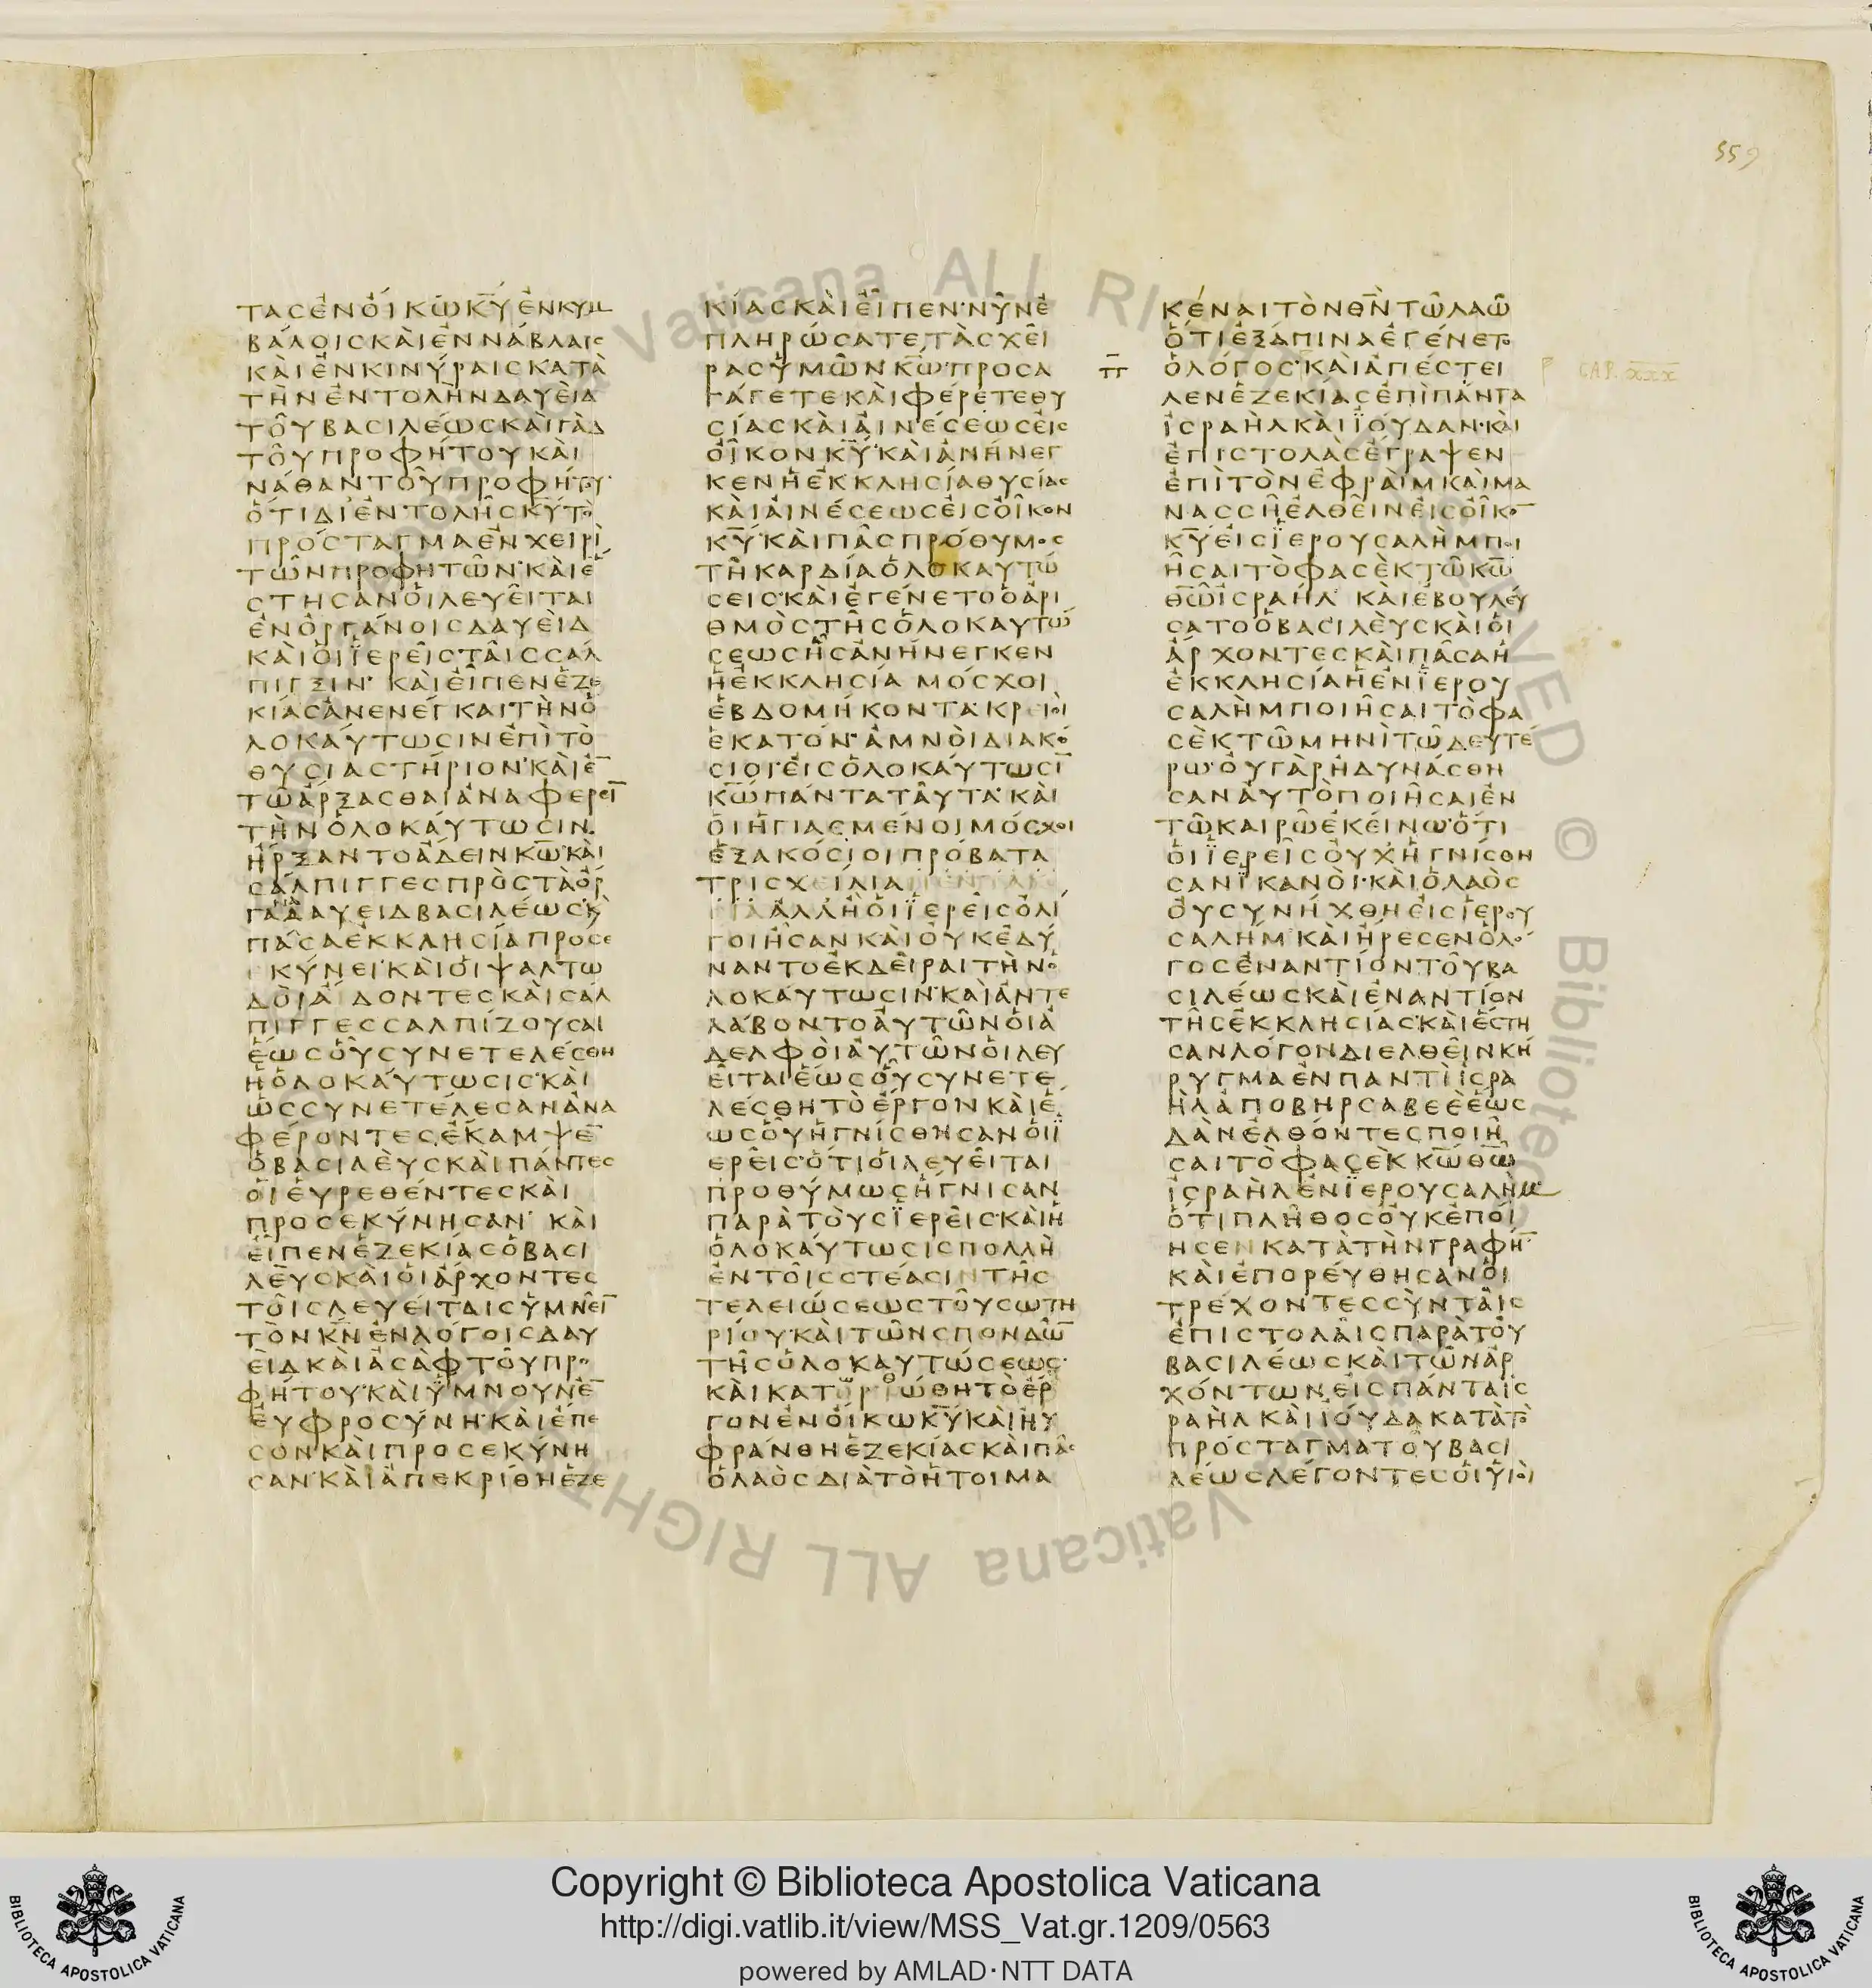 559
ΤΑϹΕΝΟΙΚΩΚΥΕΝΚΥΜ
ΒΑΛΟΙϹΚΑΙΕΝΝΑΒΛΑΙϹ
ΚΑΙΕΝΚΙΝΥΡΑΙϹΚΑΤΑ
ΤΗΝΕΝΤΟΛΗΝΔΑΥΕΙΔ
ΤΟΥΒΑϹΙΛΕΩϹΚΑΙΓΑΔ
ΤΟΥΠΡΟΦΗΤΟΥΚΑΙ
ΝΑΘΑΝΤΟΥΠΡΟΦΗΤΟΥ·
ΟΤΙΔΙΕΝΤΟΛΗϹΚΥΤΟ
ΠΡΟϹΤΑΓΜΑΕΝΧΕΙΡΙ
ΤΩΝΠΡΟΦΗΤΩΝ·ΚΑΙΕ
ϹΤΗϹΑΝΟΙΛΕΥΕΙΤΑΙ
ΕΝΟΡΓΑΝΟΙϹΔΑΥΕΙΔ
ΚΑΙΟΙΪΕΡΕΙϹΤΑΙϹϹΑΛ
ΠΙΓΞΙΝ· ΚΑΙΕΙΠΕΝΕΖΕ
ΚΙΑϹΑΝΕΝΕΓΚΑΙΤΗΝΟ
ΛΟΚΑΥΤΩϹΙΝΕΠΙΤΟ
ΘΥϹΙΑϹΤΗΡΙΟΝ·ΚΑΙΕ̅
ΤΩΑΡΞΑϹΘΑΙΑΝΑΦΕΡΕΙ̅
ΤΗΝΟΛΟΚΑΥΤΩϹΙΝ·
ΗΡΞΑΝΤΟΑΔΕΙΝΚΩ·ΚΑΙ
ϹΑΛΠΙΓΓΕϹΠΡΟϹΤΑΟΡ
ΓΑΝΑΔΑΥΕΙΔΒΑϹΙΛΕΩϹ·Κ
ΠΑϹΑΕΚΚΛΗϹΙΑΠΡΟϹΕ
ΚΥΝΕΙ·ΚΑΙΟΙΨΑΛΤΩ
ΔΟΙΑΙΔΟΝΤΕϹΚΑΙϹΑΛ
ΠΙΓΓΕϹϹΑΛΠΙΖΟΥϹΑΙ
ΕΩϹΟΥϹΥΝΕΤΕΛΕϹΘΗ
ΗΟΛΟΚΑΥΤΩϹΙϹ·ΚΑΙ
ΩϹϹΥΝΕΤΕΛΕϹΑΝΑΝΑ
ΦΕΡΟΝΤΕϹΕΚΑΜΨΕ̅
ΟΒΑϹΙΛΕΥϹΚΑΙΠΑΝΤΕϹ
ΟΙΕΥΡΕΘΕΝΤΕϹΚΑΙ
ΠΡΟϹΕΚΥΝΗϹΑΝ· ΚΑΙ
ΕΙΠΕΝΕΖΕΚΙΑϹΟΒΑϹΙ
ΛΕΥϹΚΑΙΟΙΑΡΧΟΝΤΕϹ
ΤΟΙϹΛΕΥΕΙΤΑΙϹΥΜΝΕΙ̅
ΤΟΝΚΝΕΝΛΟΓΟΙϹΔΑΥ
ΕΙΔΚΑΙΑϹΑΦΤΟΥΠΡΟ
ΦΗΤΟΥ·ΚΑΙΥΜΝΟΥΝΕ̅
ΕΥΦΡΟϹΥΝΗ·ΚΑΙΕΠΕ
ϹΟΝΚΑΙΠΡΟϹΕΚΥΝΗ
ϹΑΝ·ΚΑΙΑΠΕΚΡΙΘΗΕΖΕ
ΚΙΑϹΚΑΙΕΙΠΕΝ·ΝΥΝΕ
ΠΛΗΡΩϹΑΤΕΤΑϹΧΕΙ
ΡΑϹΥΜΩΝΚΩ·ΠΡΟϹΑ
ΓΑΓΕΤΕΚΑΙΦΕΡΕΤΕΘΥ
ϹΙΑϹΚΑΙΑΙΝΕϹΕΩϹΕΙϹ
ΟΙΚΟΝΚΥ·ΚΑΙΑΝΗΝΕΓ
ΚΕΝΗΕΚΚΛΗϹΙΑΘΥϹΙΑϹ
ΚΑΙΑΙΝΕϹΕΩϹΕΙϹΟΙΚΟΝ
ΚΥ·ΚΑΙΠΑϹΠΡΟΘΥΜΟϹ
ΤΗΚΑΡΔΙΑΟΛΟΚΑΥΤΩ
ϹΕΙϹ·ΚΑΙΕΓΕΝΕΤΟΟΑΡΙ
ΘΜΟϹΤΗϹΟΛΟΚΑΥΤΩ
ϹΕΩϹΗϹΑΝΗΝΕΓΚΕΝ
ΗΕΚΚΛΗϹΙΑ ΜΟϹΧΟΙ
ΕΒΔΟΜΗΚΟΝΤΑ·ΚΡΕΙΟΙ
ΕΚΑΤΟΝ·ΑΜΝΟΙΔΙΑΚΟ
ϹΙΟΙ·ΕΙϹΟΛΟΚΑΥΤΩϹΙ̅
ΚΩΠΑΝΤΑΤΑΥΤΑ·ΚΑΙ
ΟΙΗΓΙΑϹΜΕΝΟΙΜΟϹΧΟΙ
ΕΞΑΚΟϹΙΟΙΠΡΟΒΑΤΑ
ΤΡΙϹΧΕΙΛΙΑ
ΑΛΛΗΟΙΪΕΡΕΙϹΟΛΙ
ΓΟΙΗϹΑΝΚΑΙΟΥΚΕΔΥ
ΝΑΝΤΟΕΚΔΕΙΡΑΙΤΗΝΟ
ΛΟΚΑΥΤΩϹΙΝ·ΚΑΙΑΝΤΕ
ΛΑΒΟΝΤΟΑΥΤΩΝΟΙΑ
ΔΕΛΦΟΙΑΥΤΩΝΟΙΛΕΥ
ΕΙΤΑΙΕΩϹΟΥϹΥΝΕΤΕ
ΛΕϹΘΗΤΟΕΡΓΟΝΚΑΙΕ
ΩϹΟΥΗΓΝΙϹΘΗϹΑΝΟΙΪ
ΕΡΕΙϹ·ΟΤΙΟΙΛΕΥΕΙΤΑΙ
ΠΡΟΘΥΜΩϹΗΓΝΙϹΑΝ
ΠΑΡΑΤΟΥϹΪΕΡΕΙϹ·ΚΑΙΗ
ΟΛΟΚΑΥΤΩϹΙϹΠΟΛΛΗ
ΕΝΤΟΙϹϹΤΕΑϹΙΝΤΗϹ
ΤΕΛΕΙΩϹΕΩϹΤΟΥϹΩΤΗ
ΡΙΟΥ·ΚΑΙΤΩΝϹΠΟΝΔΩ̅
ΤΗϹΟΛΟΚΑΥΤΩϹΕΩϹ·
ΚΑΙΚΑΤΩΡΘΩΘΗΤΟΕΡ
ΓΟΝΕΝΟΙΚΩΚΥ·ΚΑΙΗΥ
ΦΡΑΝΘΗΕΖΕΚΙΑϹΚΑΙΠΑϹ
ΟΛΑΟϹΔΙΑΤΟΗΤΟΙΜΑ
ΚΕΝΑΙΤΟΝΘΝΤΩΛΑΩ
ΟΤΙΕΞΑΠΙΝΑΕΓΕΝΕΤΟ
ΟΛΟΓΟϹ·ΚΑΙΑΠΕϹΤΕΙ
ΛΕΝΕΖΕΚΙΑϹΕΠΙΠΑΝΤΑ
ΙϹΡΑΗΛΚΑΙΪΟΥΔΑΝ·ΚΑΙ
ΕΠΙϹΤΟΛΑϹΕΓΡΑΨΕΝ
ΕΠΙΤΟΝΕΦΡΑΙΜΚΑΙΜΑ
ΝΑϹϹΗΕΛΘΕΙΝΕΙϹΟΙΚΟ̅
ΚΥΕΙϹΪΕΡΟΥϹΑΛΗΜΠΟΙ
ΗϹΑΙΤΟΦΑϹΕΚΤΩΚΩ
ΘΩΙϹΡΑΗΛ· ΚΑΙΕΒΟΥΛΕΥ
ϹΑΤΟΟΒΑϹΙΛΕΥϹΚΑΙΟΙ
ΑΡΧΟΝΤΕϹΚΑΙΠΑϹΑΗ
ΕΚΚΛΗϹΙΑΗΕΝΪΕΡΟΥ
ϹΑΛΗΜΠΟΙΗϹΑΙΤΟΦΑ
ϹΕΚΤΩΜΗΝΙΤΩΔΕΥΤΕ
ΡΩ·ΟΥΓΑΡΗΔΥΝΑϹΘΗ
ϹΑΝΑΥΤΟΠΟΙΗϹΑΙΕΝ
ΤΩΚΑΙΡΩΕΚΕΙΝΩ·ΟΤΙ
ΟΙΪΕΡΕΙϹΟΥΧΗΓΝΙϹΘΗ
ϹΑΝΪΚΑΝΟΙ·ΚΑΙΟΛΑΟϹ
ΟΥϹΥΝΗΧΘΗΕΙϹΪΕΡΟΥ
ϹΑΛΗΜ·ΚΑΙΗΡΕϹΕΝΟΛΟ
ΓΟϹΕΝΑΝΤΙΟΝΤΟΥΒΑ
ϹΙΛΕΩϹΚΑΙΕΝΑΝΤΙΟΝ
ΤΗϹΕΚΚΛΗϹΙΑϹ·ΚΑΙΕϹΤΗ
ϹΑΝΛΟΓΟΝΔΙΕΛΘΕΙΝΚΗ
ΡΥΓΜΑΕΝΠΑΝΤΙΙϹΡΑ
ΗΛΑΠΟΒΗΡϹΑΒΕΕΕΩϹ
ΔΑΝΕΛΘΟΝΤΕϹΠΟΙΗ
ϹΑΙΤΟΦΑϹΕΚΚΩΘΩ
ΙϹΡΑΗΛΕΝΪΕΡΟΥϹΑΛΗΜ
ΟΤΙΠΛΗΘΟϹΟΥΚΕΠΟΙ
ΗϹΕΝΚΑΤΑΤΗΝΓΡΑΦΗ̅
ΚΑΙΕΠΟΡΕΥΘΗϹΑΝΟΙ
ΤΡΕΧΟΝΤΕϹϹΥΝΤΑΙϹ
ΕΠΙϹΤΟΛΑΙϹΠΑΡΑΤΟΥ
ΒΑϹΙΛΕΩϹΚΑΙΤΩΝΑΡ
ΧΟΝΤΩΝΕΙϹΠΑΝΤΑΙϹ
ΡΑΗΛΚΑΙΪΟΥΔΑΚΑΤΑΤΟ
ΠΡΟϹΤΑΓΜΑΤΟΥΒΑϹΙ
ΛΕΩϹΛΕΓΟΝΤΕϹΟΙΥΙΟΙ
CAP. XXX
Copyright © Biblioteca Apostolica Vaticana
http://digi.vatlib.it/view/MSS_Vat.gr.1209/0563
powered by AMLAD·NTT DATA
BIBLIOTECA APOSTOLICA VATICANA
BIBLIOTECA APOSTOLICA VATICANA